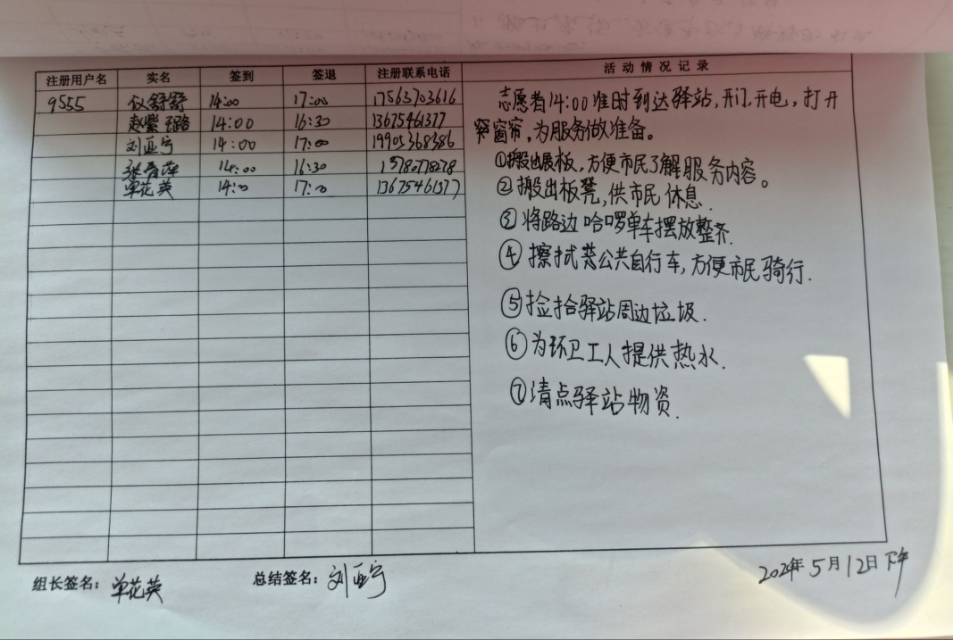 注册用户名 实名 签到 签退 注册联系电话 活动情况记录
9555 14:00 17:00 17563703616
14:00 16:30 13675461377
刘亚宁 14:00 17:00 19903368386
14:00 16:30
单花英 14:00 17:00 13675461377
志愿者14:00准时到达驿站,开门、开电,打开
窗帘,为服务做准备。
①搬出展板,方便市民了解服务内容。
②搬出板凳,供市民休息.
③将路边哈啰单车摆放整齐.
④擦拭公共自行车,方便市民骑行.
⑤捡拾驿站周边垃圾.
⑥为环卫工人提供热水.
⑦清点驿站物资.
组长签名:单花英 总结签名:刘亚宁 2024年5月12日下午